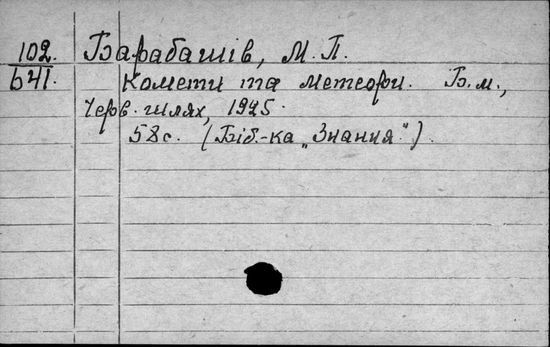 102. Барабашів, М. П.
641. Комети та метеори. Б. м.,
Черв. шлях, 1925.
58 с. (Біб.-ка „Знання“).